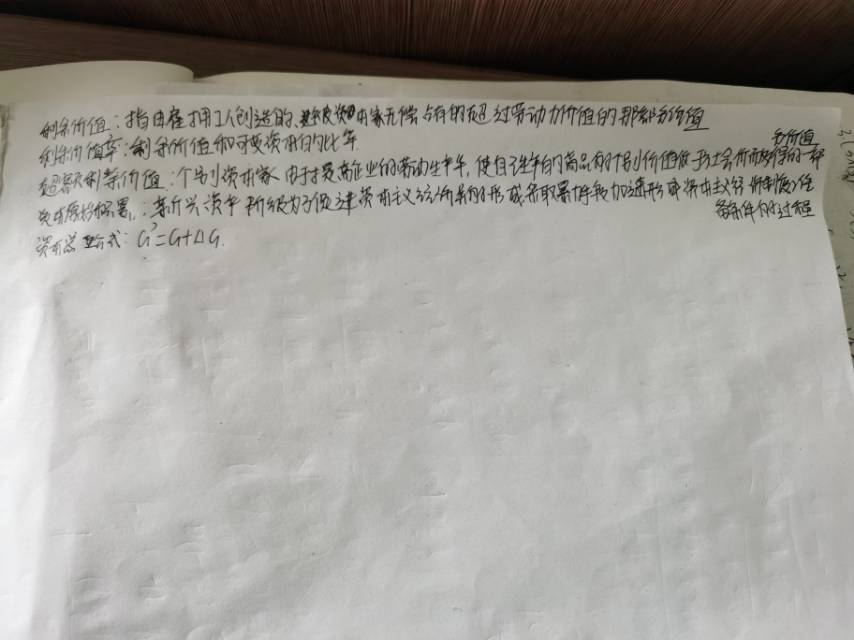 剩余价值：指由雇拥工人创造的、被资本家无偿占有的超过劳动力价值的那部分价值
剩余价值率：剩余价值和可变资本的比率
超额剩余价值：个别资本家由于提高企业的劳动生产率，使自己生产的商品的个别价值低于社会价值而获得的一部
分价值
资本原始积累：新兴资产阶级为了促进资本主义经济的形成，采取暴力手段加速形成资本主义经济制度
备条件的过程
资本总公式：G'=G+ΔG.